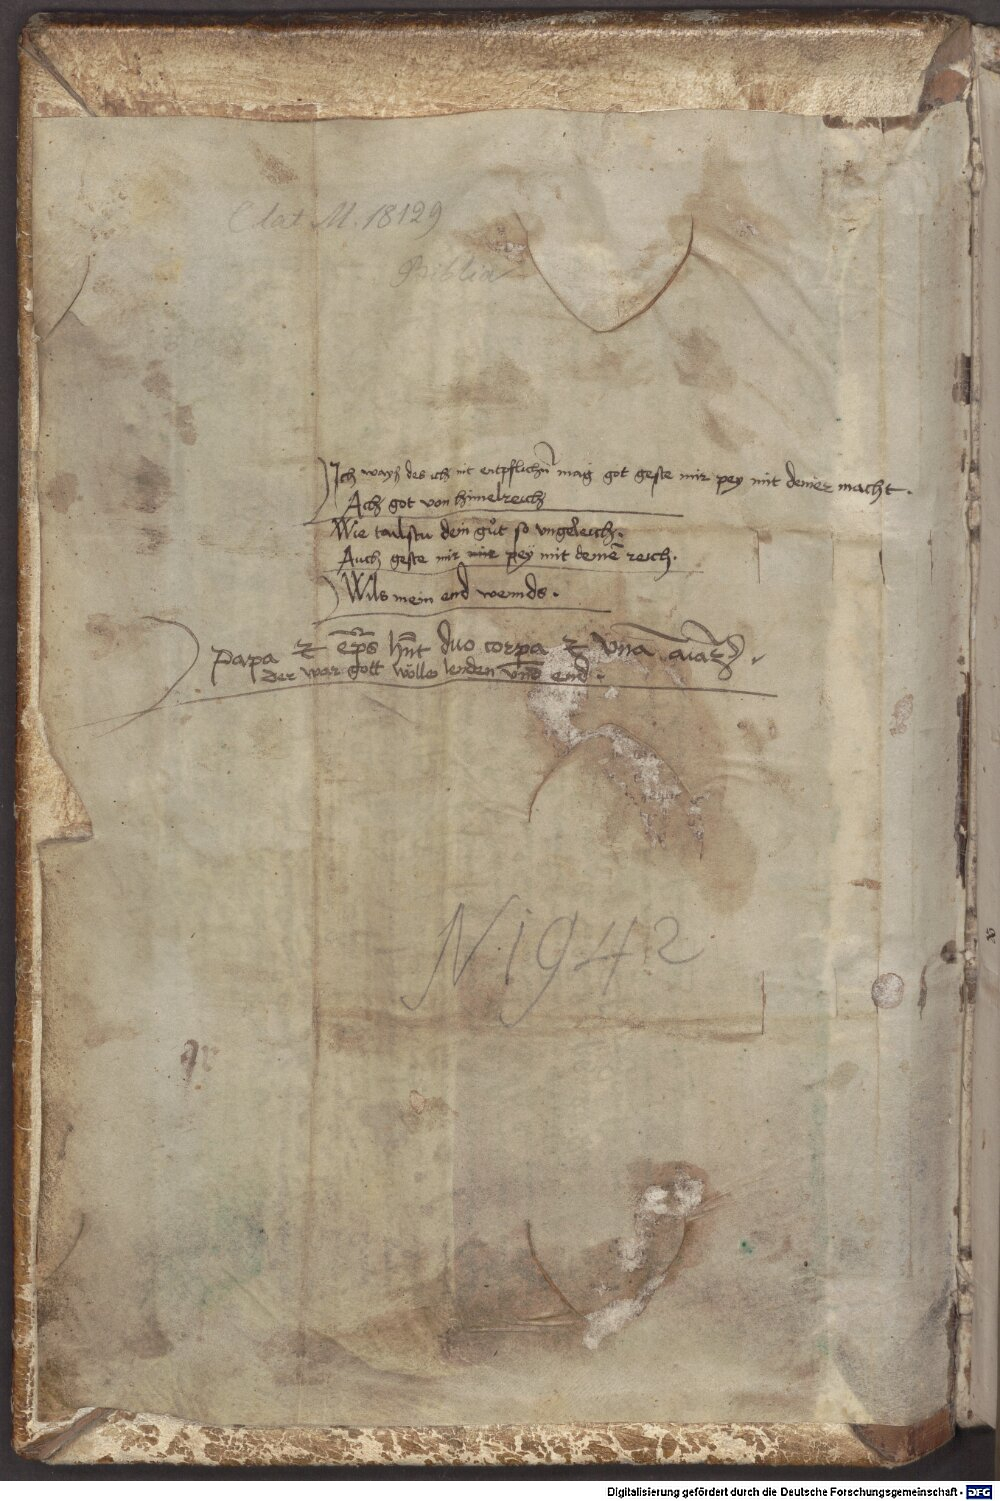 Clat M. 18129
Biblia
Ich wayß des ich nit entpflichn mag got geste mir pey mit deiner macht.
Ach got von himelreich
Wie tailstu dein gůt so vngeleich.
Auch geste mir mir pey mit deinē reich.
Wils mein end wernds.
Papa et ep̄s hn̄t duo corpa et vna
der war gott wölle lenden vnd end.
N 1942
Digitalisierung gefördert durch die Deutsche Forschungsgemeinschaft - DFG